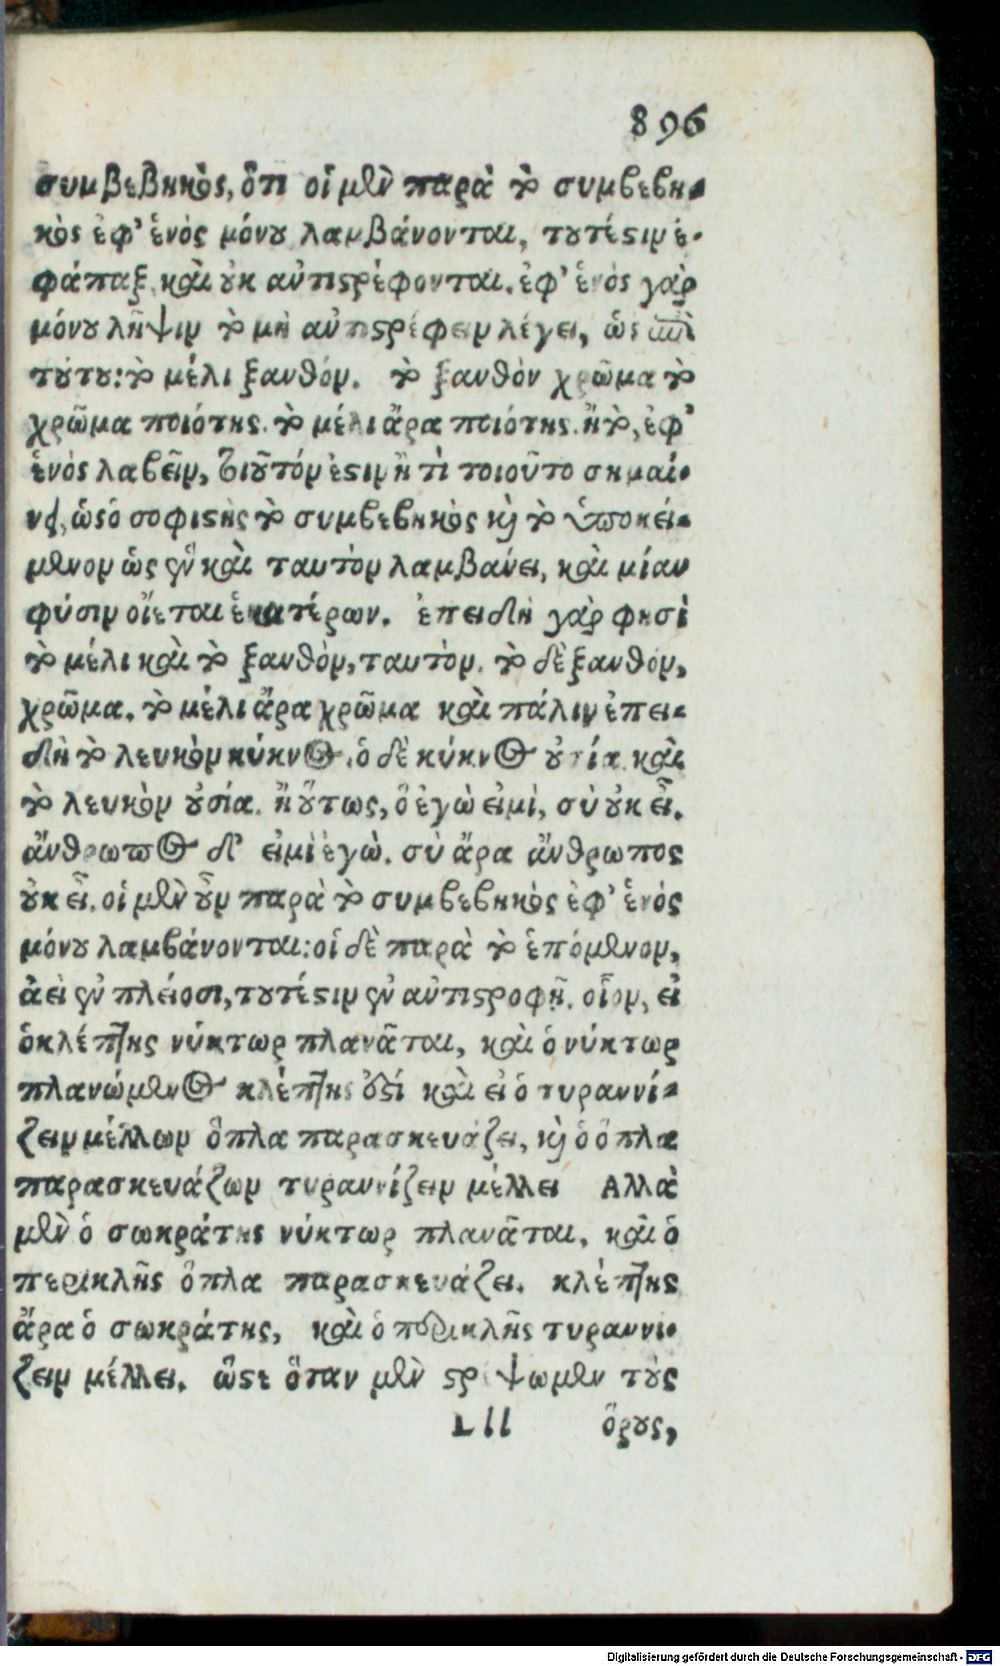 896
συμβεβηκὸς, ὅτι οἱ μὲν παρὰ τὸ συμβεβη-
κὸς ἐφ' ἑνὸς μόνου λαμβάνονται, τουτέστιν ἐ-
φάπαξ, καὶ οὐκ ἀντιστρέφονται. ἐφ' ἑνὸς γὰρ
μόνου λῆψιν τὸ μὴ ἀντιστρέφειν λέγει, ὡς ἐπὶ
τούτου: τὸ μέλι ξανθόν. τὸ ξανθὸν χρῶμα τὸ
χρῶμα ποιότης. τὸ μέλι ἄρα ποιότης. ἢ τὸ, ἐφ'
ἑνὸς λαβεῖν, τοιοῦτόν ἐστιν ἤ τι τοιοῦτο σημαί-
νει, ὡς ὁ σοφιστὴς τὸ συμβεβηκὸς καὶ τὸ ὑποκεί-
μενον ὡς ἓν καὶ ταυτὸν λαμβάνει, καὶ μίαν
φύσιν οἴεται ἑκατέρων. ἐπειδὴ γὰρ φησὶ
τὸ μέλι καὶ τὸ ξανθὸν, ταυτὸν. τὸ δὲ ξανθὸν,
χρῶμα. τὸ μέλι ἄρα χρῶμα καὶ πάλιν ἐπει-
δὴ τὸ λευκὸν κύκνος, ὁ δὲ κύκνος οὐσία. καὶ
τὸ λευκὸν οὐσία. ἢ οὕτως, ὃ ἐγὼ εἰμὶ, σὺ οὐκ εἶ.
ἄνθρωπος δ' εἰμὶ ἐγὼ. σὺ ἄρα ἄνθρωπος
οὐκ εἶ. οἱ μὲν οὖν παρὰ τὸ συμβεβηκὸς ἐφ' ἑνὸς
μόνου λαμβάνονται: οἱ δὲ παρὰ τὸ ἑπόμενον,
ἀεὶ ἐν πλείοσι, τουτέστιν ἐν ἀντιστροφῇ. οἷον, εἰ
ὁ κλέπτης νύκτωρ πλανᾶται, καὶ ὁ νύκτωρ
πλανώμενος κλέπτης ἐστί καὶ εἰ ὁ τυραννί-
ζειν μέλλων ὅπλα παρασκευάζει, καὶ ὁ ὅπλα
παρασκευάζων τυραννίζειν μέλλει Αλλὰ
μὲν ὁ σωκράτης νύκτωρ πλανᾶται, καὶ ὁ
περικλῆς ὅπλα παρασκευάζει. κλέπτης
ἄρα ὁ σωκράτης, καὶ ὁ περικλῆς τυραννί-
ζειν μέλλει. ὥστε ὅταν μὲν στρέψωμεν τοὺς
Lll ὅρους,
Digitalisierung gefördert durch die Deutsche Forschungsgemeinschaft - DFG